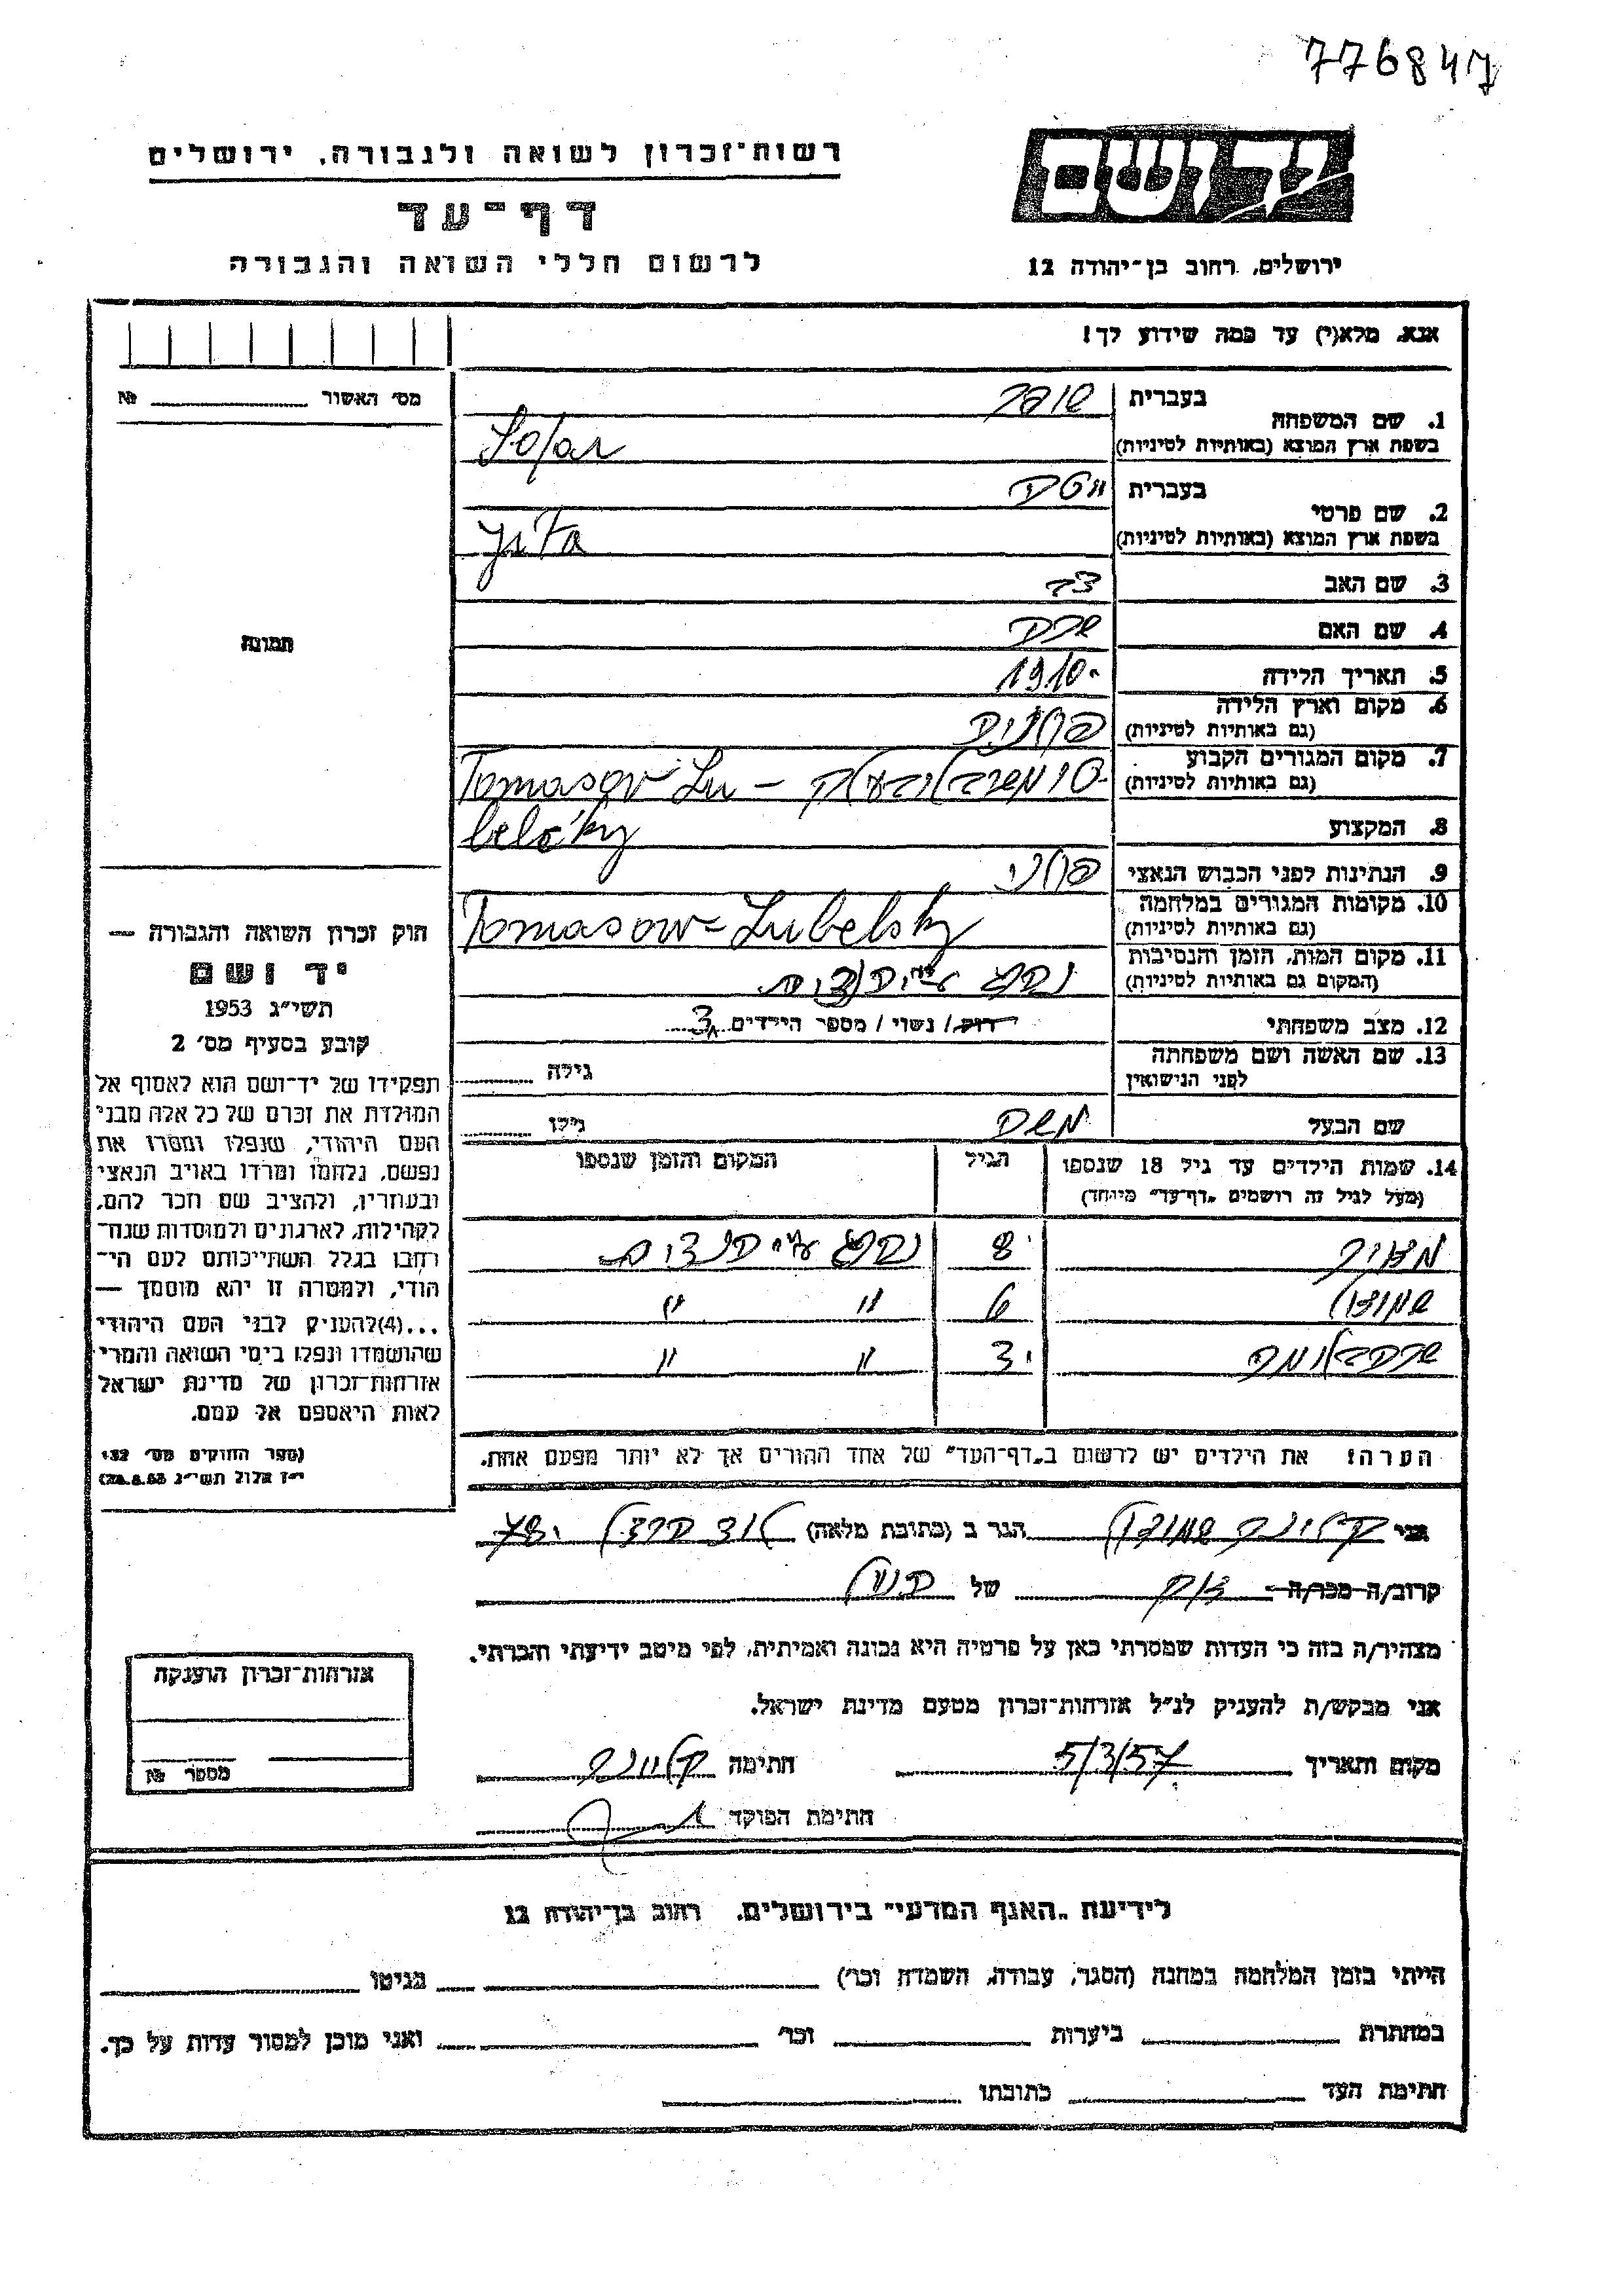 776847
רשות־זכרון לשואה ולגבורה, ירושלים
דף־עד
לרשום חללי השואה והגבורה
יד ושם
ירושלים, רחוב בן־יהודה 12
אנא, מלא(י) עד כמה שידוע לך!
מס׳ האשור № 
1. שם המשפחה
בעברית שופר
בשפת ארץ המוצא (באותיות לטיניות) Sofar
2. שם פרטי
בעברית יוטה
בשפת ארץ המוצא (באותיות לטיניות) Juta
3. שם האב
4. שם האם שרה
5. תאריך הלידה 1910
6. מקום וארץ הלידה
(גם באותיות לטיניות) פולניה
7. מקום המגורים הקבוע
(גם באותיות לטיניות) Tomasov Lu-
belsky
8. המקצוע
9. הנתינות לפני הכבוש הנאצי פולני
10. מקומות המגורים במלחמה
(גם באותיות לטיניות) Tomasow-Lubelsky
11. מקום המות, הזמן והנסיבות
(המקום גם באותיות לטיניות) נספה ע״י הנצים
12. מצב משפחתי רווק / נשוי / מספר הילדים 3
13. שם האשה ושם משפחתה
לפני הנישואין גילה
שם הבעל משה גילו
14. שמות הילדים עד גיל 18 שנספו
(מעל לגיל זה רושמים „דף־עד״ מיוחד)
הגיל
המקום והזמן שנספו
8 נספה ע״י הנצים
שמואל 6 " "
3 " "
הערה! את הילדים יש לרשום ב„דף־העד״ של אחד ההורים אך לא יותר מפעם אחת.
תמונה
חוק זכרון השואה והגבורה —
יד ושם
תשי״ג 1953
קובע בסעיף מס׳ 2
תפקידו של יד־ושם הוא לאסוף אל
המולדת את זכרם של כל אלה מבני
העם היהודי, שנפלו ומסרו את
נפשם, נלחמו ומרדו באויב הנאצי
ובעוזריו, ולהציב שם וזכר להם,
לקהילות, לארגונים ולמוסדות שנח־
רבו בגלל השתייכותם לעם הי־
הודי, ולמטרה זו יהא מוסמך —
...(4) להעניק לבני העם היהודי
שהושמדו ונפלו בימי השואה והמרי
אזרחות־זכרון של מדינת ישראל
לאות היאספם אל עמם.
(ספר החוקים מס׳ 132
י״ז אלול תשי״ג 28.8.53)
אני שמואל הגר ב (כתובת מלאה) 78
קרוב/ה מכר/ה של
מצהיר/ה בזה כי העדות שמסרתי כאן על פרטיה היא נכונה ואמיתית, לפי מיטב ידיעתי והכרתי.
אני מבקש/ת להעניק לנ״ל אזרחות־זכרון מטעם מדינת ישראל.
מקום ותאריך 5/3/57 חתימה
חתימת הפוקד
אזרחות־זכרון הוענקה
מספר №
לידיעת „האגף המדעי״ בירושלים, רחוב בן־יהודה 12
הייתי בזמן המלחמה במחנה (הסגר, עבודה, השמדה וכו׳) בגיטו
במחתרת ביערות וכו׳ ואני מוכן למסור עדות על כך.
חתימת העד כתובתו